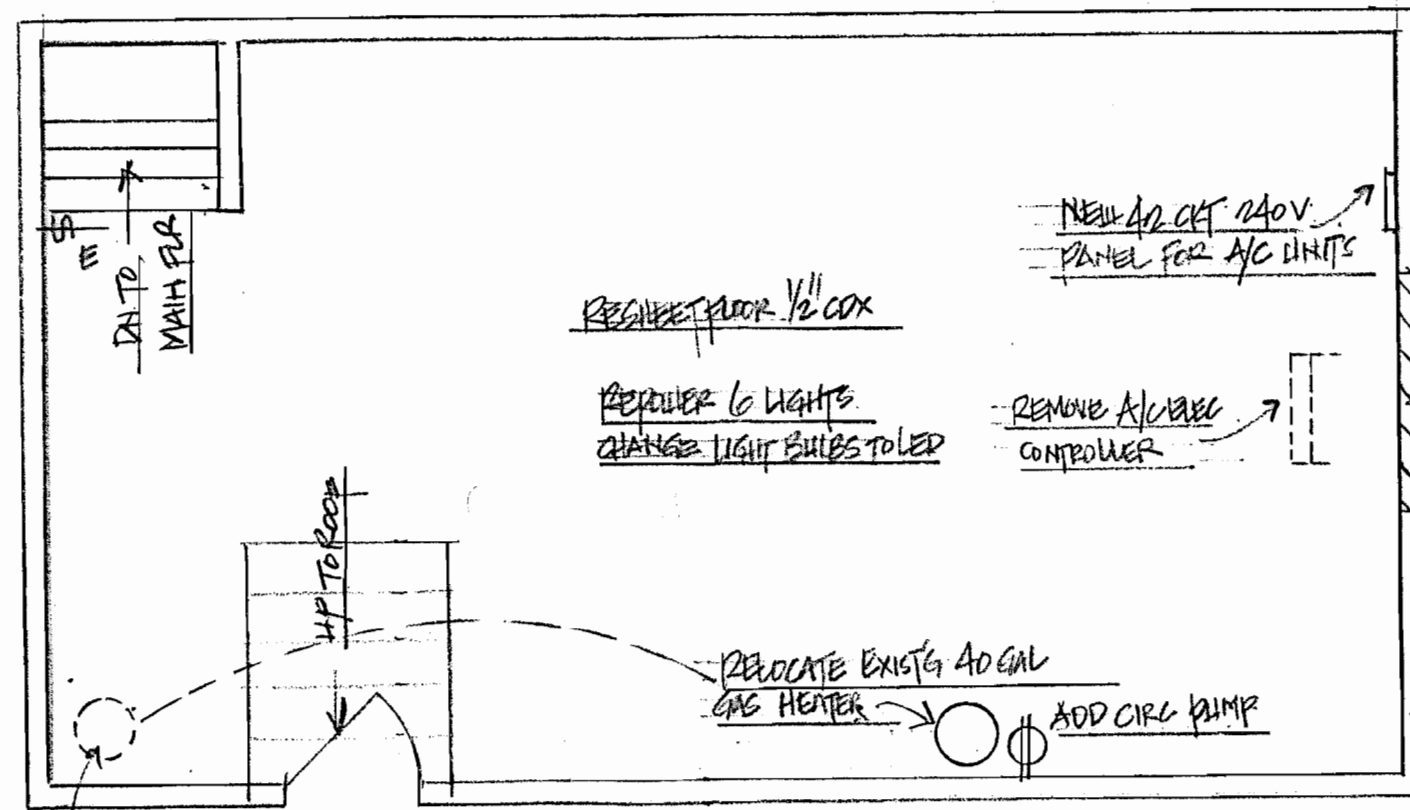 NEW 42 CKT 240V
PANEL FOR A/C UNITS
DN TO
MAIN FLR
RESHEET FLOOR 1/2" CDX
REPOWER 6 LIGHTS
CHANGE LIGHT BULBS TO LED
REMOVE A/C ELEC
CONTROLLER
UP TO ROOF
RELOCATE EXIST'G 40 GAL
GAS HEATER
ADD CIRC PUMP